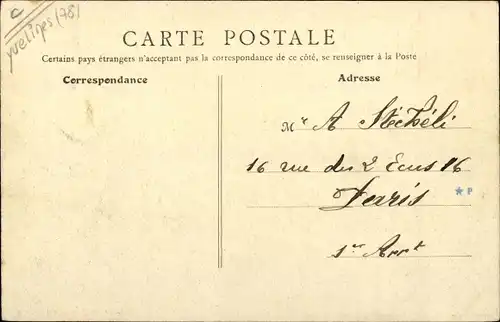 C
Yvelines (78)
CARTE POSTALE
Certains pays étrangers n'acceptant pas la correspondance de ce côté, se renseigner à la Poste
Correspondance
Adresse
Mr A Stéckéli
16 rue des 2 Ecus 16
Paris
★P
1er Arrt